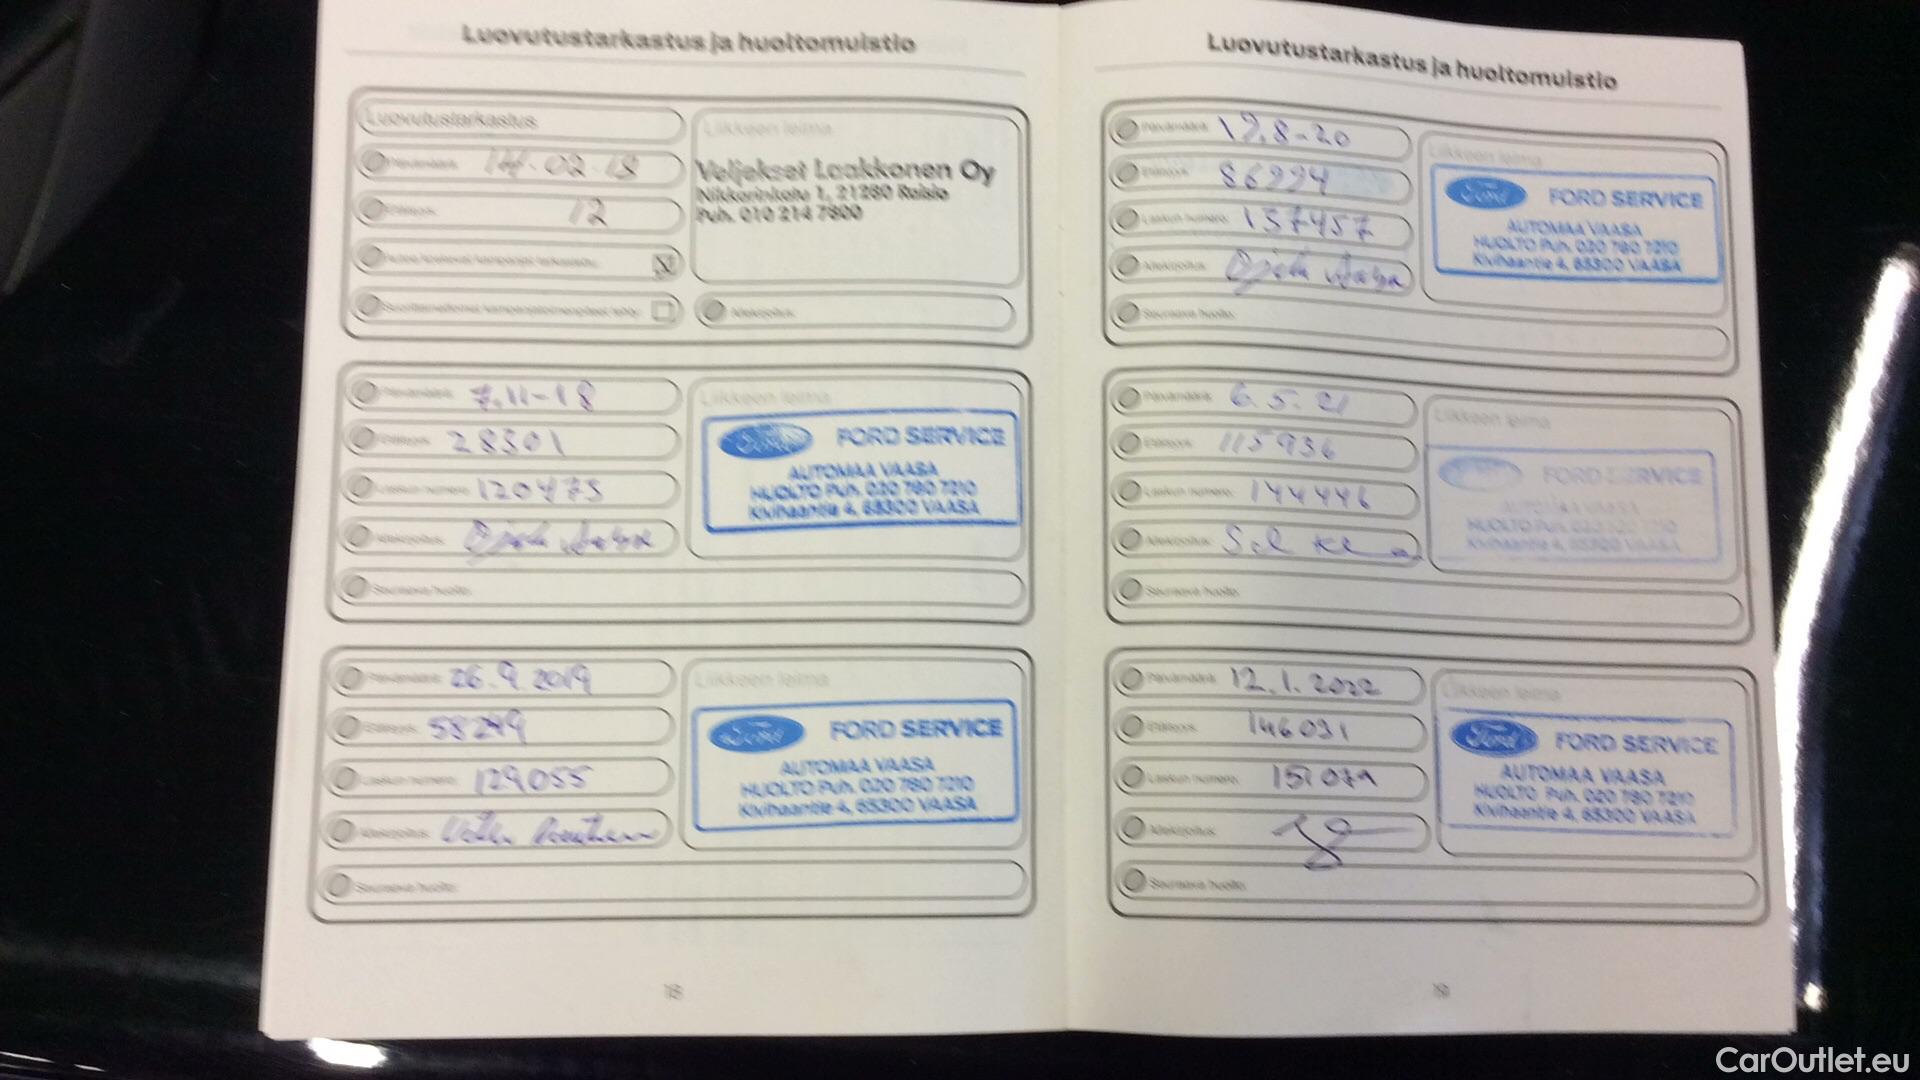 Luovutustarkastus ja huoltomuistio
Luovutustarkastus
Päivämäärä:
12
Liikkeen leima
Veljekset Laakkonen Oy
Nikkarinkatu 1, 21280 Raisio
Puh. 010 214 7800
Allekirjoitus:
Päivämäärä: 7.11-18
28301
Laskun numero: 120475
Allekirjoitus:
Seuraava huolto:
Liikkeen leima
Ford FORD SERVICE
AUTOMAA VAASA
HUOLTO Puh. 020 780 7210
Kivihaantie 4, 65300 VAASA
Päivämäärä: 26.9.2019
58249
Laskun numero: 129055
Allekirjoitus:
Seuraava huolto:
Liikkeen leima
Ford FORD SERVICE
AUTOMAA VAASA
HUOLTO Puh. 020 780 7210
Kivihaantie 4, 65300 VAASA
18
Luovutustarkastus ja huoltomuistio
Päivämäärä: 19.8-20
86994
Laskun numero: 137457
Allekirjoitus:
Seuraava huolto:
Liikkeen leima
Ford FORD SERVICE
AUTOMAA VAASA
HUOLTO Puh. 020 780 7210
Kivihaantie 4, 65300 VAASA
Päivämäärä: 6.5.21
115936
Laskun numero: 144446
Allekirjoitus:
Seuraava huolto:
Liikkeen leima
Ford FORD SERVICE
AUTOMAA VAASA
HUOLTO Puh. 020 780 7210
Kivihaantie 4, 65300 VAASA
Päivämäärä: 12.1.2022
146031
Laskun numero: 151079
Allekirjoitus:
Seuraava huolto:
Liikkeen leima
Ford FORD SERVICE
AUTOMAA VAASA
HUOLTO Puh. 020 780 7210
Kivihaantie 4, 65300 VAASA
19
CarOutlet.eu